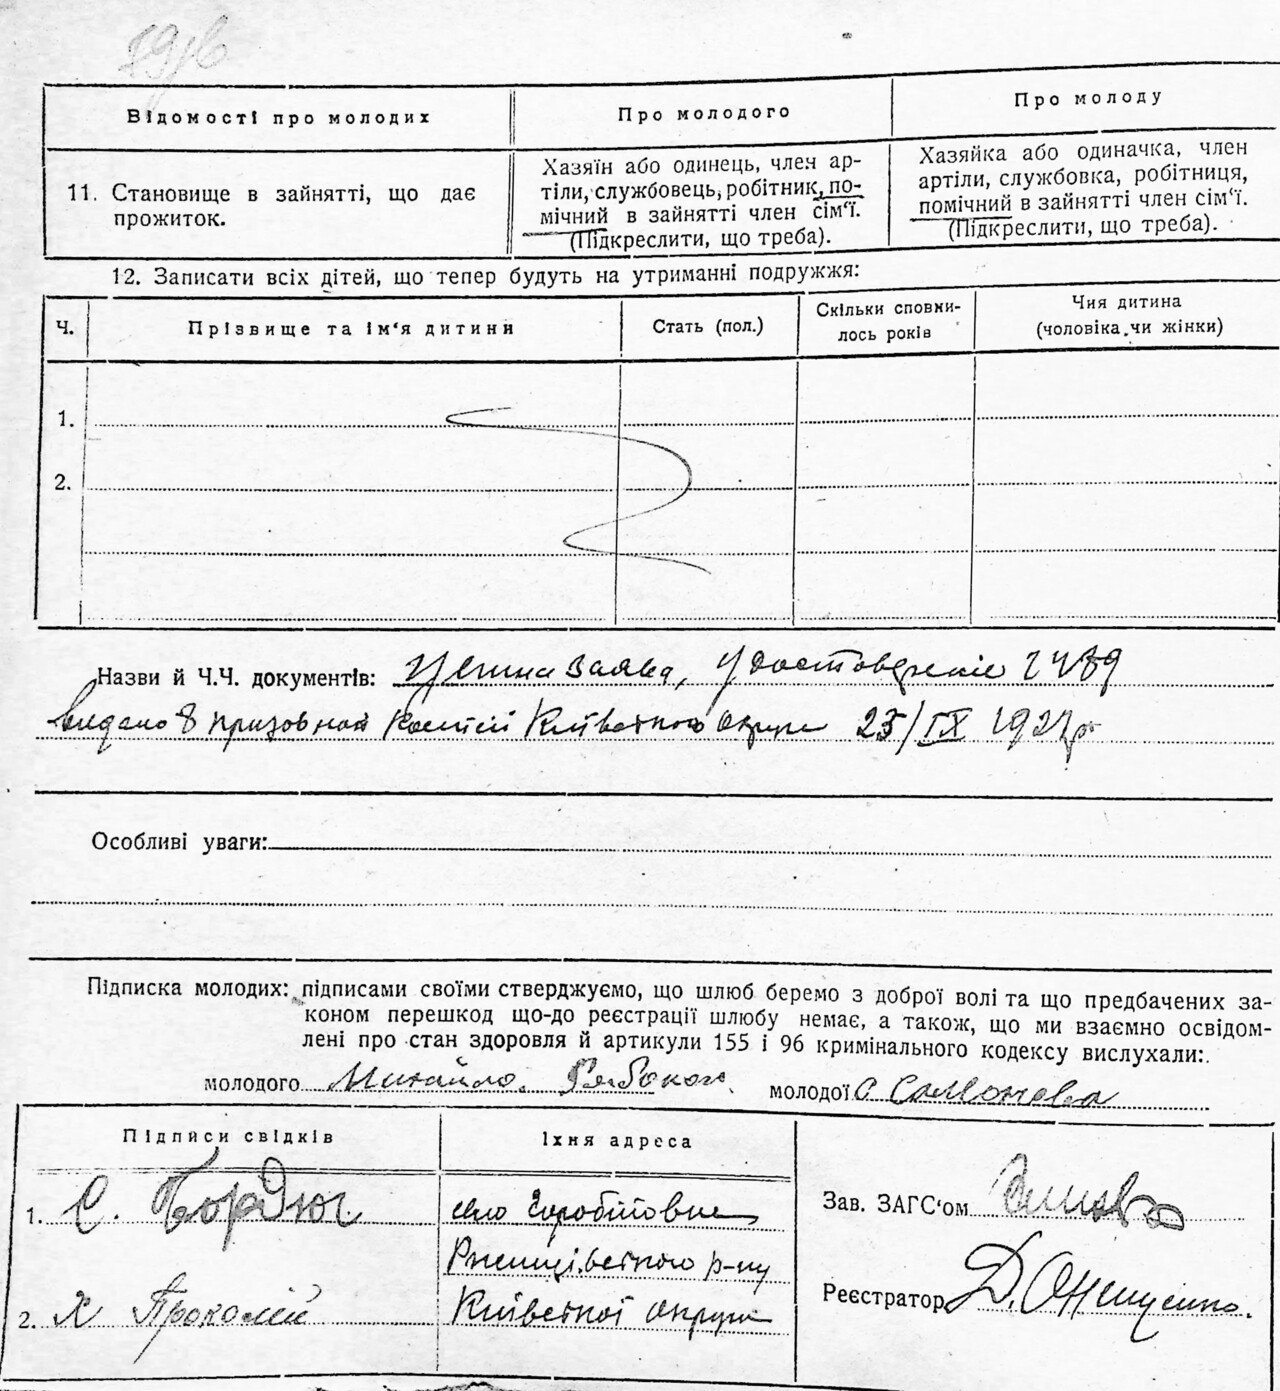 Відомості про молодих
Про молодого
Про молоду
11. Становище в зайнятті, що дає
прожиток.
Хазяїн або одинець, член ар-
тіли, службовець, робітник, по-
мічний в зайнятті член сім'ї.
(Підкреслити, що треба).
Хазяйка або одиначка, член
артіли, службовка, робітниця,
помічний в зайнятті член сім'ї.
(Підкреслити, що треба).
12. Записати всіх дітей, що тепер будуть на утриманні подружжя:
Ч.
Прізвище та ім'я дитини
Стать (пол.)
Скільки сповни-
лось років
Чия дитина
(чоловіка чи жінки)
1.
2.
Назви й Ч.Ч. документів: заява, Удостовереніе
видано 8 призовной Комісії Київського Округи 23/IX 1927 р
Особливі уваги:
Підписка молодих: підписами своїми стверджуємо, що шлюб беремо з доброї волі та що предбачених за-
коном перешкод що-до реєстрації шлюбу немає, а також, що ми взаємно освідом-
лені про стан здоровля й артикули 155 і 96 кримінального кодексу вислухали:
молодого Михайло Рябокон молодої
Підписи свідків
Їхня адреса
1. С. Бордюг
село
Ржищівського р-ну
2. Х Прокопій
Київської округи
Зав. ЗАГС'ом
Реєстратор Д. Онищенко.